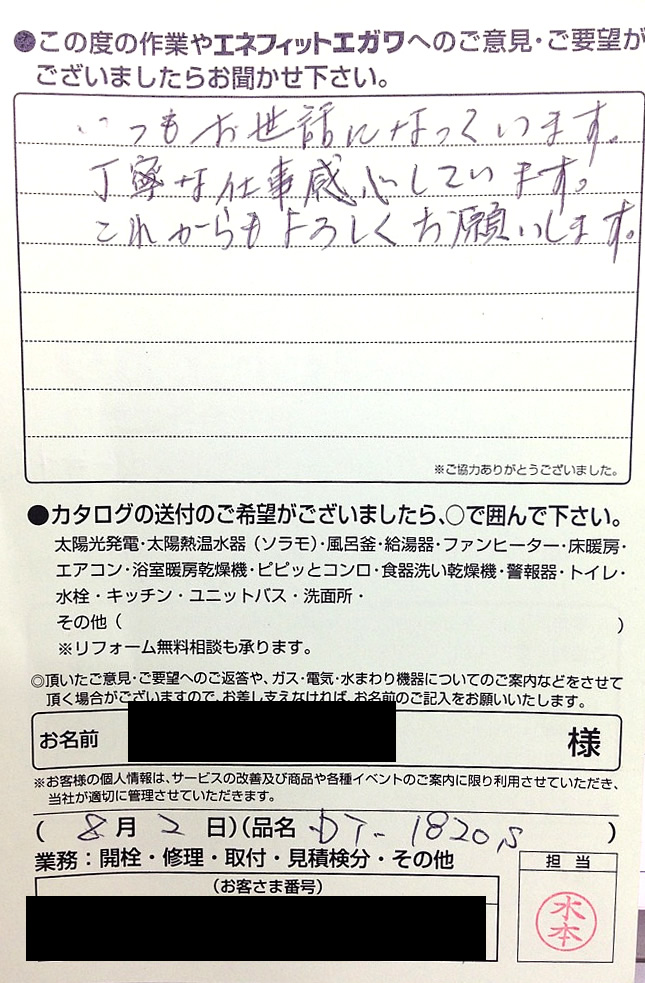 ●この度の作業やエネフィットエガワへのご意見・ご要望が
ございましたらお聞かせ下さい。
いつもお世話になっています。
丁寧な仕事感心しています。
これからもよろしくお願いします。
※ご協力ありがとうございました。
●カタログの送付のご希望がございましたら、○で囲んで下さい。
太陽光発電・太陽熱温水器（ソラモ）・風呂釜・給湯器・ファンヒーター・床暖房・
エアコン・浴室暖房乾燥機・ピピッとコンロ・食器洗い乾燥機・警報器・トイレ・
水栓・キッチン・ユニットバス・洗面所・
その他（　　　）
※リフォーム無料相談も承ります。
◎頂いたご意見・ご要望へのご返答や、ガス・電気・水まわり機器についてのご案内などをさせて
頂く場合がございますので、お差し支えなければ、お名前のご記入をお願いいたします。
お名前　様
※お客様の個人情報は、サービスの改善及び商品や各種イベントのご案内に限り利用させていただき、
当社が適切に管理させていただきます。
（ 8月 2 日）（品名 DT-1820S ）
業務：開栓・修理・取付・見積検分・その他
（お客さま番号）
担当
水本